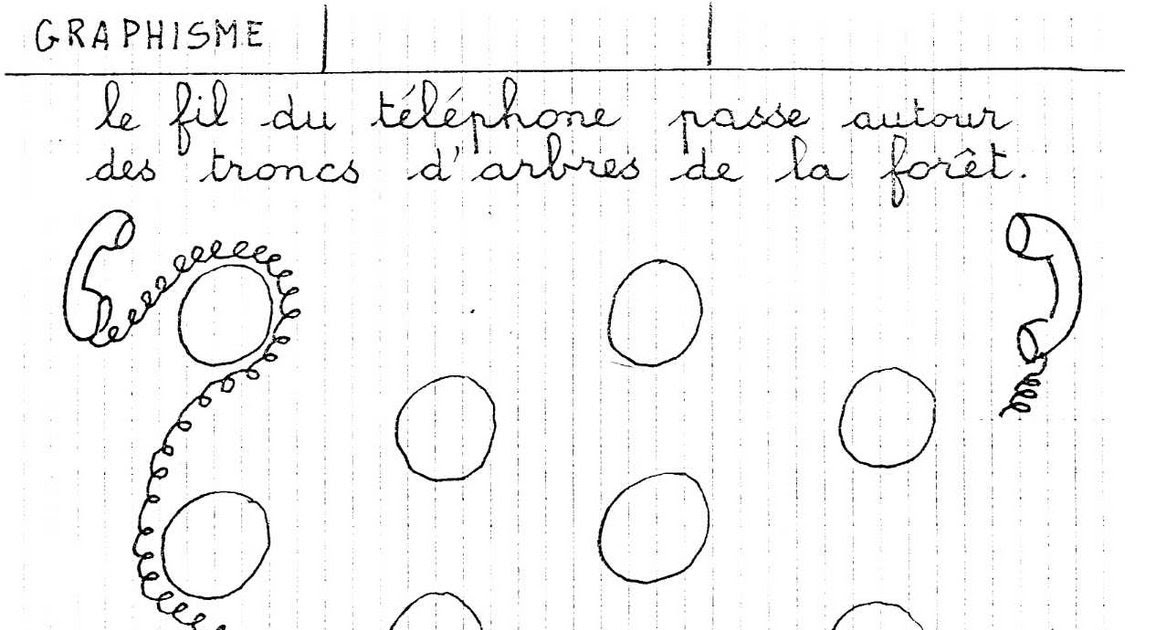 GRAPHISME
le fil du téléphone passe autour
des troncs d'arbres de la forêt.